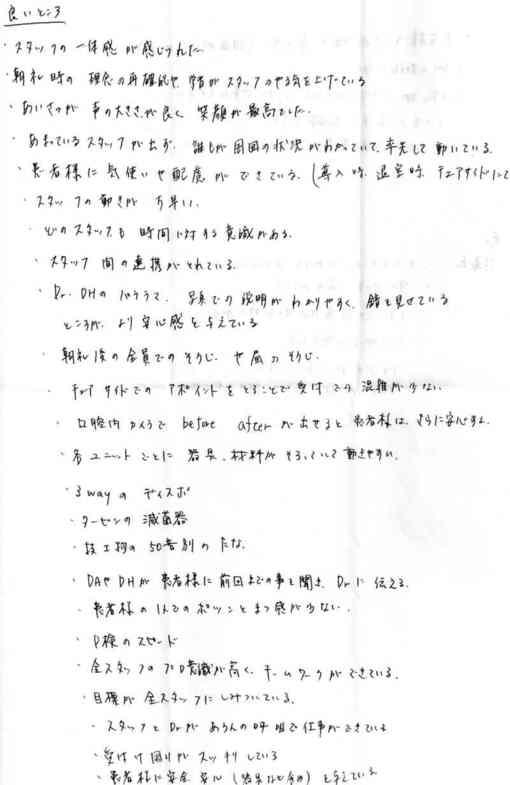 良いところ
・スタッフの一体感が感じられた
・朝礼時の理念の再確認や皆がスタッフのやる気を上げている
・あいさつが声の大きさが良く笑顔が最高でした。
・あまっているスタッフが出ず、誰もが周囲の状況がわかっていて、率先して動いている。
・患者様に気使いや配慮ができている。(導入時、退室時、チェアサイドにて
・スタッフの動きが す早い。
・どのスタッフも時間に対する意識がある。
・スタッフ間の連携がとれている。
・Dr. DHの 写真での説明がわかりやすく、鏡を見せている
ところが、より安心感を与えている
・朝礼後の全員でのそうじ や ぞうじ.
・チェアサイドでのアポイントをとることで受付での混雑が少ない
・口腔内カメラで before after が出せると患者様は、さらに安心する。
・各ユニットごとに器具、材料がそろっていて動きやすい。
・3wayのディスポ
・タービンの滅菌器
・技工物の50音別のたな。
・DAやDHが患者様に前回までの事を聞き、Drに伝える。
・患者様の1人でのポツンとまつ感が少ない。
・P検のスピード
・全スタッフのプロ意識が高く、チームワークができている。
・目標が全スタッフにしみついている。
・スタッフとDrがあうんの呼吸で仕事ができている
・受付け回りがスッキリしている
・患者様に安全 安心 ( ) を与えている